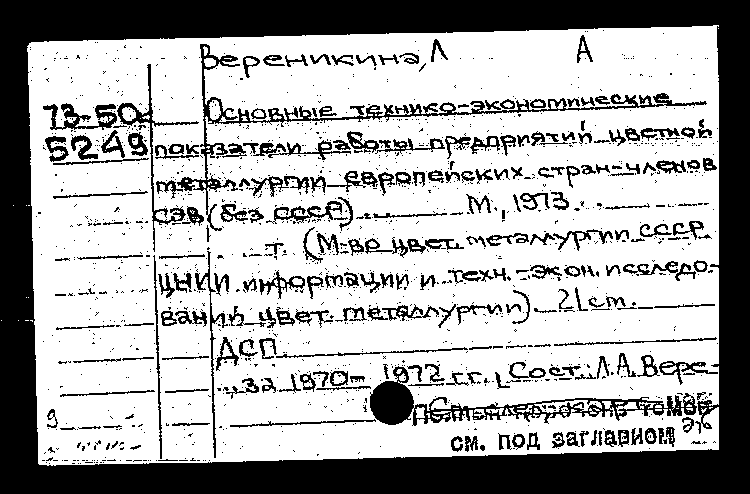 Вереникина, Л А
73-50
5249
Основные технико-экономические
показатели работы предприятий цветной
металлургии европейских стран-членов
СЭВ (без СССР)... М., 1973. .
т. (М-во цвет. металлургии СССР.
ЦНИИ информации и техн.-экон. исследо-
ваний цвет. металлургии). 21 cm.
ДСП.
... за 1970-1972 гг., Сост.: Л.А. Вере-
9
томов
см. под заглавием